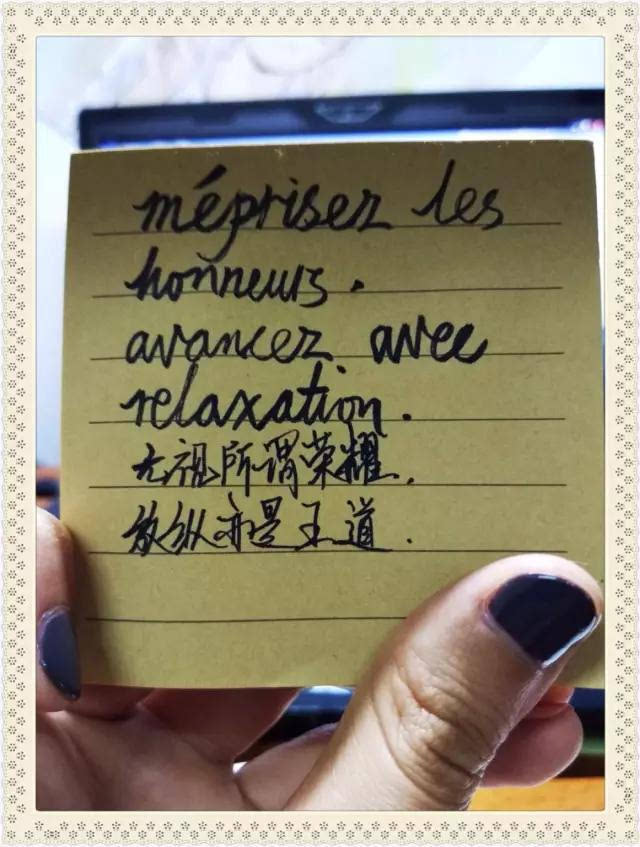 méprisez les
honneurs.
avancez avec
relaxation.
无视所谓荣耀.
放纵亦是王道.